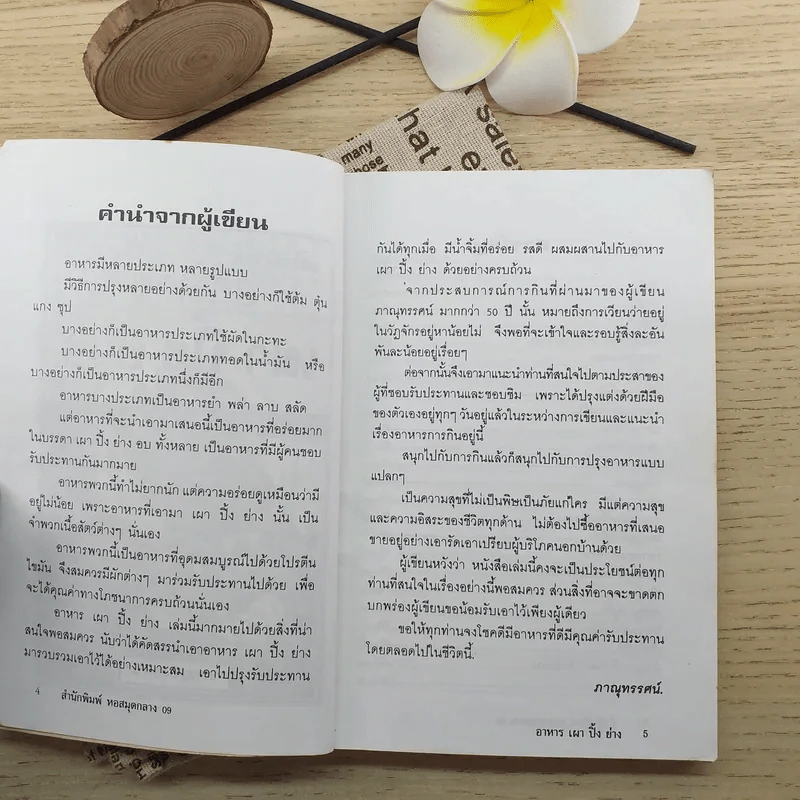 many
hose
hat
sale
คำนำจากผู้เขียน
อาหารมีหลายประเภท หลายรูปแบบ
มีวิธีการปรุงหลายอย่างด้วยกัน บางอย่างก็ใช้ต้ม ตุ๋น
แกง ซุป
บางอย่างก็เป็นอาหารประเภทใช้ผัดในกะทะ
บางอย่างก็เป็นอาหารประเภททอดในน้ำมัน หรือ
บางอย่างก็เป็นอาหารประเภทนึ่งก็มีอีก
อาหารบางประเภทเป็นอาหารยำ พล่า ลาบ สลัด
แต่อาหารที่จะนำเอามาเสนอนี้เป็นอาหารที่อร่อยมาก
ในบรรดา เผา ปิ้ง ย่าง อบ ทั้งหลาย เป็นอาหารที่มีผู้คนชอบ
รับประทานกันมากมาย
อาหารพวกนี้ทำไม่ยากนัก แต่ความอร่อยดูเหมือนว่ามี
อยู่ไม่น้อย เพราะอาหารที่เอามา เผา ปิ้ง ย่าง นั้น เป็น
จำพวกเนื้อสัตว์ต่างๆ นั่นเอง
อาหารพวกนี้เป็นอาหารที่อุดมสมบูรณ์ไปด้วยโปรตีน
ไขมัน จึงสมควรมีผักต่างๆ มาร่วมรับประทานไปด้วย เพื่อ
จะได้คุณค่าทางโภชนาการครบถ้วนนั่นเอง
อาหาร เผา ปิ้ง ย่าง เล่มนี้มากมายไปด้วยสิ่งที่น่า
สนใจพอสมควร นับว่าได้คัดสรรนำเอาอาหาร เผา ปิ้ง ย่าง
มารวบรวมเอาไว้ได้อย่างเหมาะสม เอาไปปรุงรับประทาน
4 สำนักพิมพ์ หอสมุดกลาง 09
กันได้ทุกเมื่อ มีน้ำจิ้มที่อร่อย รสดี ผสมผสานไปกับอาหาร
เผา ปิ้ง ย่าง ด้วยอย่างครบถ้วน
จากประสบการณ์การกินที่ผ่านมาของผู้เขียน
ภาณุทรรศน์ มากกว่า 50 ปี นั้น หมายถึงการเวียนว่ายอยู่
ในวัฏจักรอยู่หาน้อยไม่ จึงพอที่จะเข้าใจและรอบรู้สิ่งละอัน
พันละน้อยอยู่เรื่อยๆ
ต่อจากนั้นจึงเอามาแนะนำท่านที่สนใจไปตามประสาของ
ผู้ที่ชอบรับประทานและชอบชิม เพราะได้ปรุงแต่งด้วยฝีมือ
ของตัวเองอยู่ทุกๆ วันอยู่แล้วในระหว่างการเขียนและแนะนำ
เรื่องอาหารการกินอยู่นี้
สนุกไปกับการกินแล้วก็สนุกไปกับการปรุงอาหารแบบ
แปลกๆ
เป็นความสุขที่ไม่เป็นพิษเป็นภัยแก่ใคร มีแต่ความสุข
และความอิสระของชีวิตทุกด้าน ไม่ต้องไปซื้ออาหารที่เสนอ
ขายอยู่อย่างเอารัดเอาเปรียบผู้บริโภคนอกบ้านด้วย
ผู้เขียนหวังว่า หนังสือเล่มนี้คงจะเป็นประโยชน์ต่อทุก
ท่านที่สนใจในเรื่องอย่างนี้พอสมควร ส่วนสิ่งที่อาจจะขาดตก
บกพร่องผู้เขียนขอน้อมรับเอาไว้เพียงผู้เดียว
ขอให้ทุกท่านจงโชคดีมีอาหารที่ดีมีคุณค่ารับประทาน
โดยตลอดไปในชีวิตนี้.
ภาณุทรรศน์.
อาหาร เผา ปิ้ง ย่าง 5